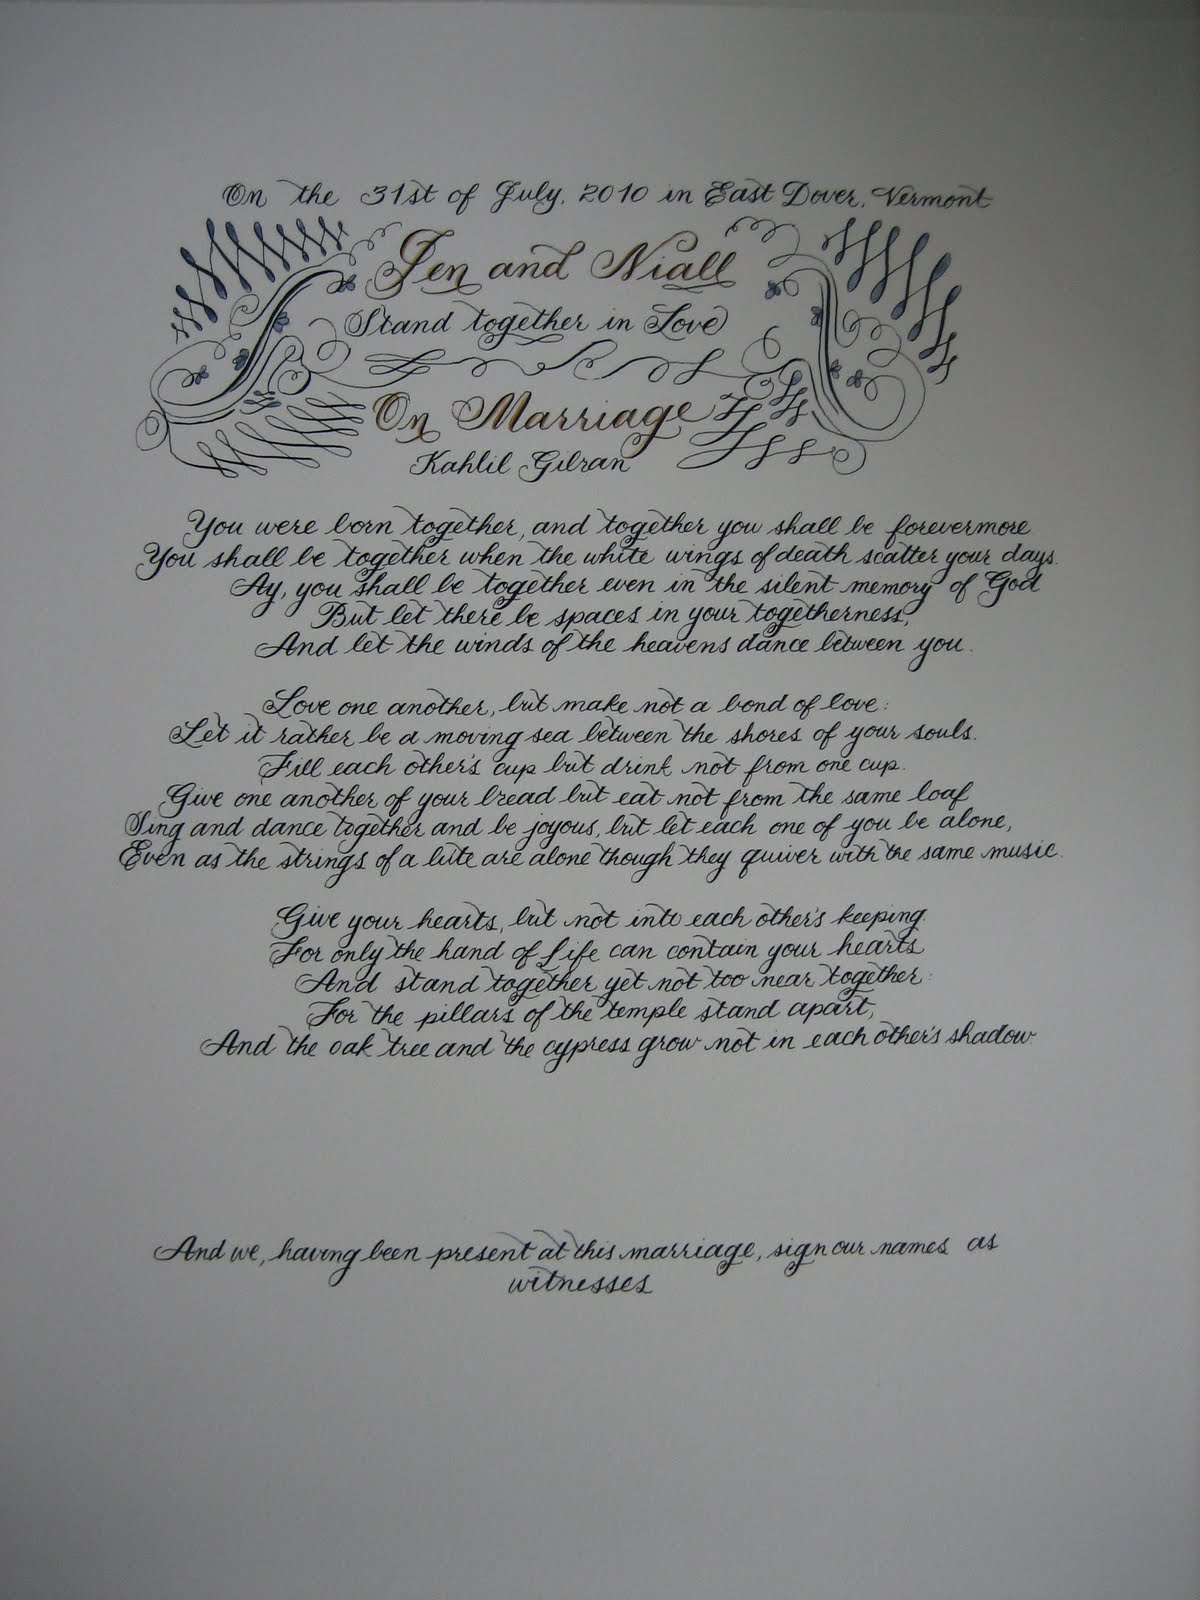 On the 31st of July, 2010 in East Dover, Vermont
Jen and Niall
Stand together in Love
On Marriage
Kahlil Gibran
You were born together, and together you shall be forevermore
You shall be together when the white wings of death scatter your days.
Ay, you shall be together even in the silent memory of God
But let there be spaces in your togetherness,
And let the winds of the heavens dance between you.
Love one another, but make not a bond of love:
Let it rather be a moving sea between the shores of your souls.
Fill each other's cup but drink not from one cup.
Give one another of your bread but eat not from the same loaf
Sing and dance together and be joyous, but let each one of you be alone,
Even as the strings of a lute are alone though they quiver with the same music.
Give your hearts, but not into each other's keeping.
For only the hand of Life can contain your hearts
And stand together yet not too near together:
For the pillars of the temple stand apart,
And the oak tree and the cypress grow not in each other's shadow
And we, having been present at this marriage, sign our names as
witnesses